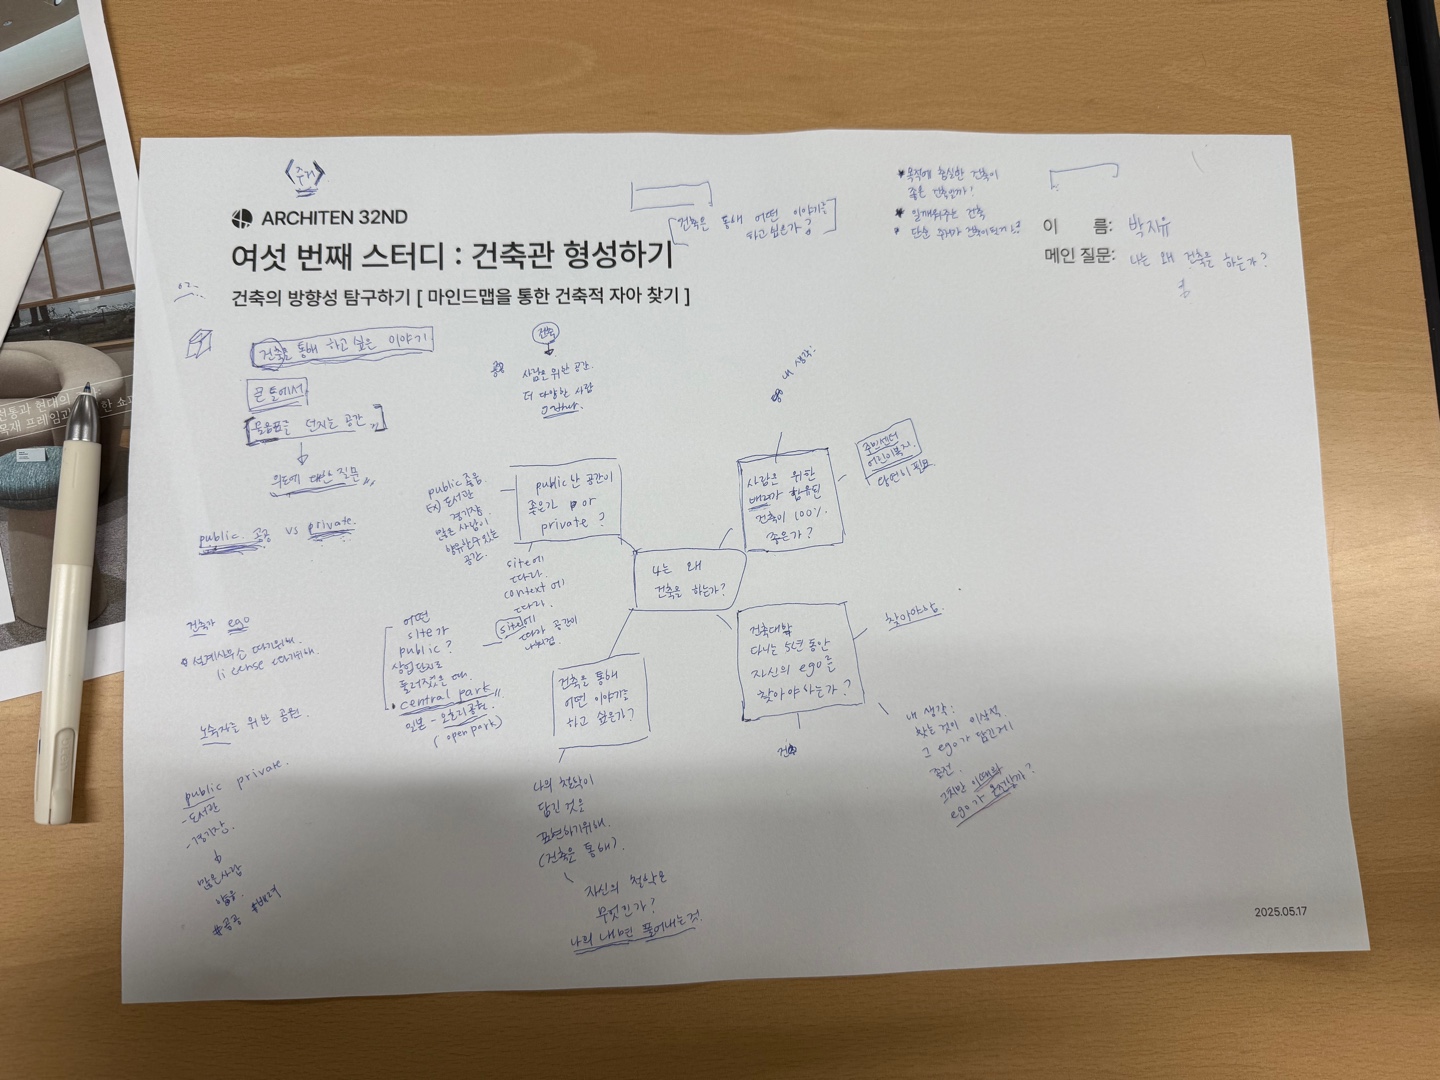 <주거>
ARCHITEN 32ND
여섯 번째 스터디 : 건축관 형성하기
건축의 방향성 탐구하기 [ 마인드맵을 통한 건축적 자아 찾기 ]
[건축을 통해 어떤 이야기를
하고 싶은가?]
*목적에 충실한 건축이
좋은 건축인가?
* 일깨워주는 건축
이 름: 박지유
메인 질문: 나는 왜 건축을 하는가?
건축을 통해 하고 싶은 이야기
큰 틀에서
[물음표를 던지는 공간]
의도에 대한 질문
public 공공 vs private.
건축
사람을 위한 공간.
더 다양한 사람
내 생각:
public 좋음
EX) 도서관
경기장.
많은 사람이
향유할 수 있는
공간.
public한 공간이
좋은가 or
private ?
사람을 위한
배려가 함유된
건축이 100%
좋은가?
주민센터
어린이복지.
당연히 필요
site에
따라.
context에
따라.
site에
따라 공간이
나는 왜
건축을 하는가?
건축가 ego
설계사무소 따기위해.
license 따기위해.
어떤
site가
public?
상업단지로
둘러졌을 때.
central park
일본 - 오호리공원.
(open park)
건축을 통해
어떤 이야기를
하고 싶은가?
건축대학
다니는 5년 동안
자신의 ego를
찾아야 하는가?
찾아야함.
노숙자를 위한 공원.
내 생각:
찾는 것이 이상적.
그 ego가 담긴 게
좋다.
그치만 이때의
ego가 온전할까?
public private.
-도서관
-경기장.
많은 사람
있음.
#공공 #배려
나의 철학이
담긴 것을
표현하기위해.
(건축을 통해).
자신의 철학은
무엇인가?
나의 내면 풀어내는 것.
2025.05.17
전통과 현대의
목재 프레임과
한 쇼파